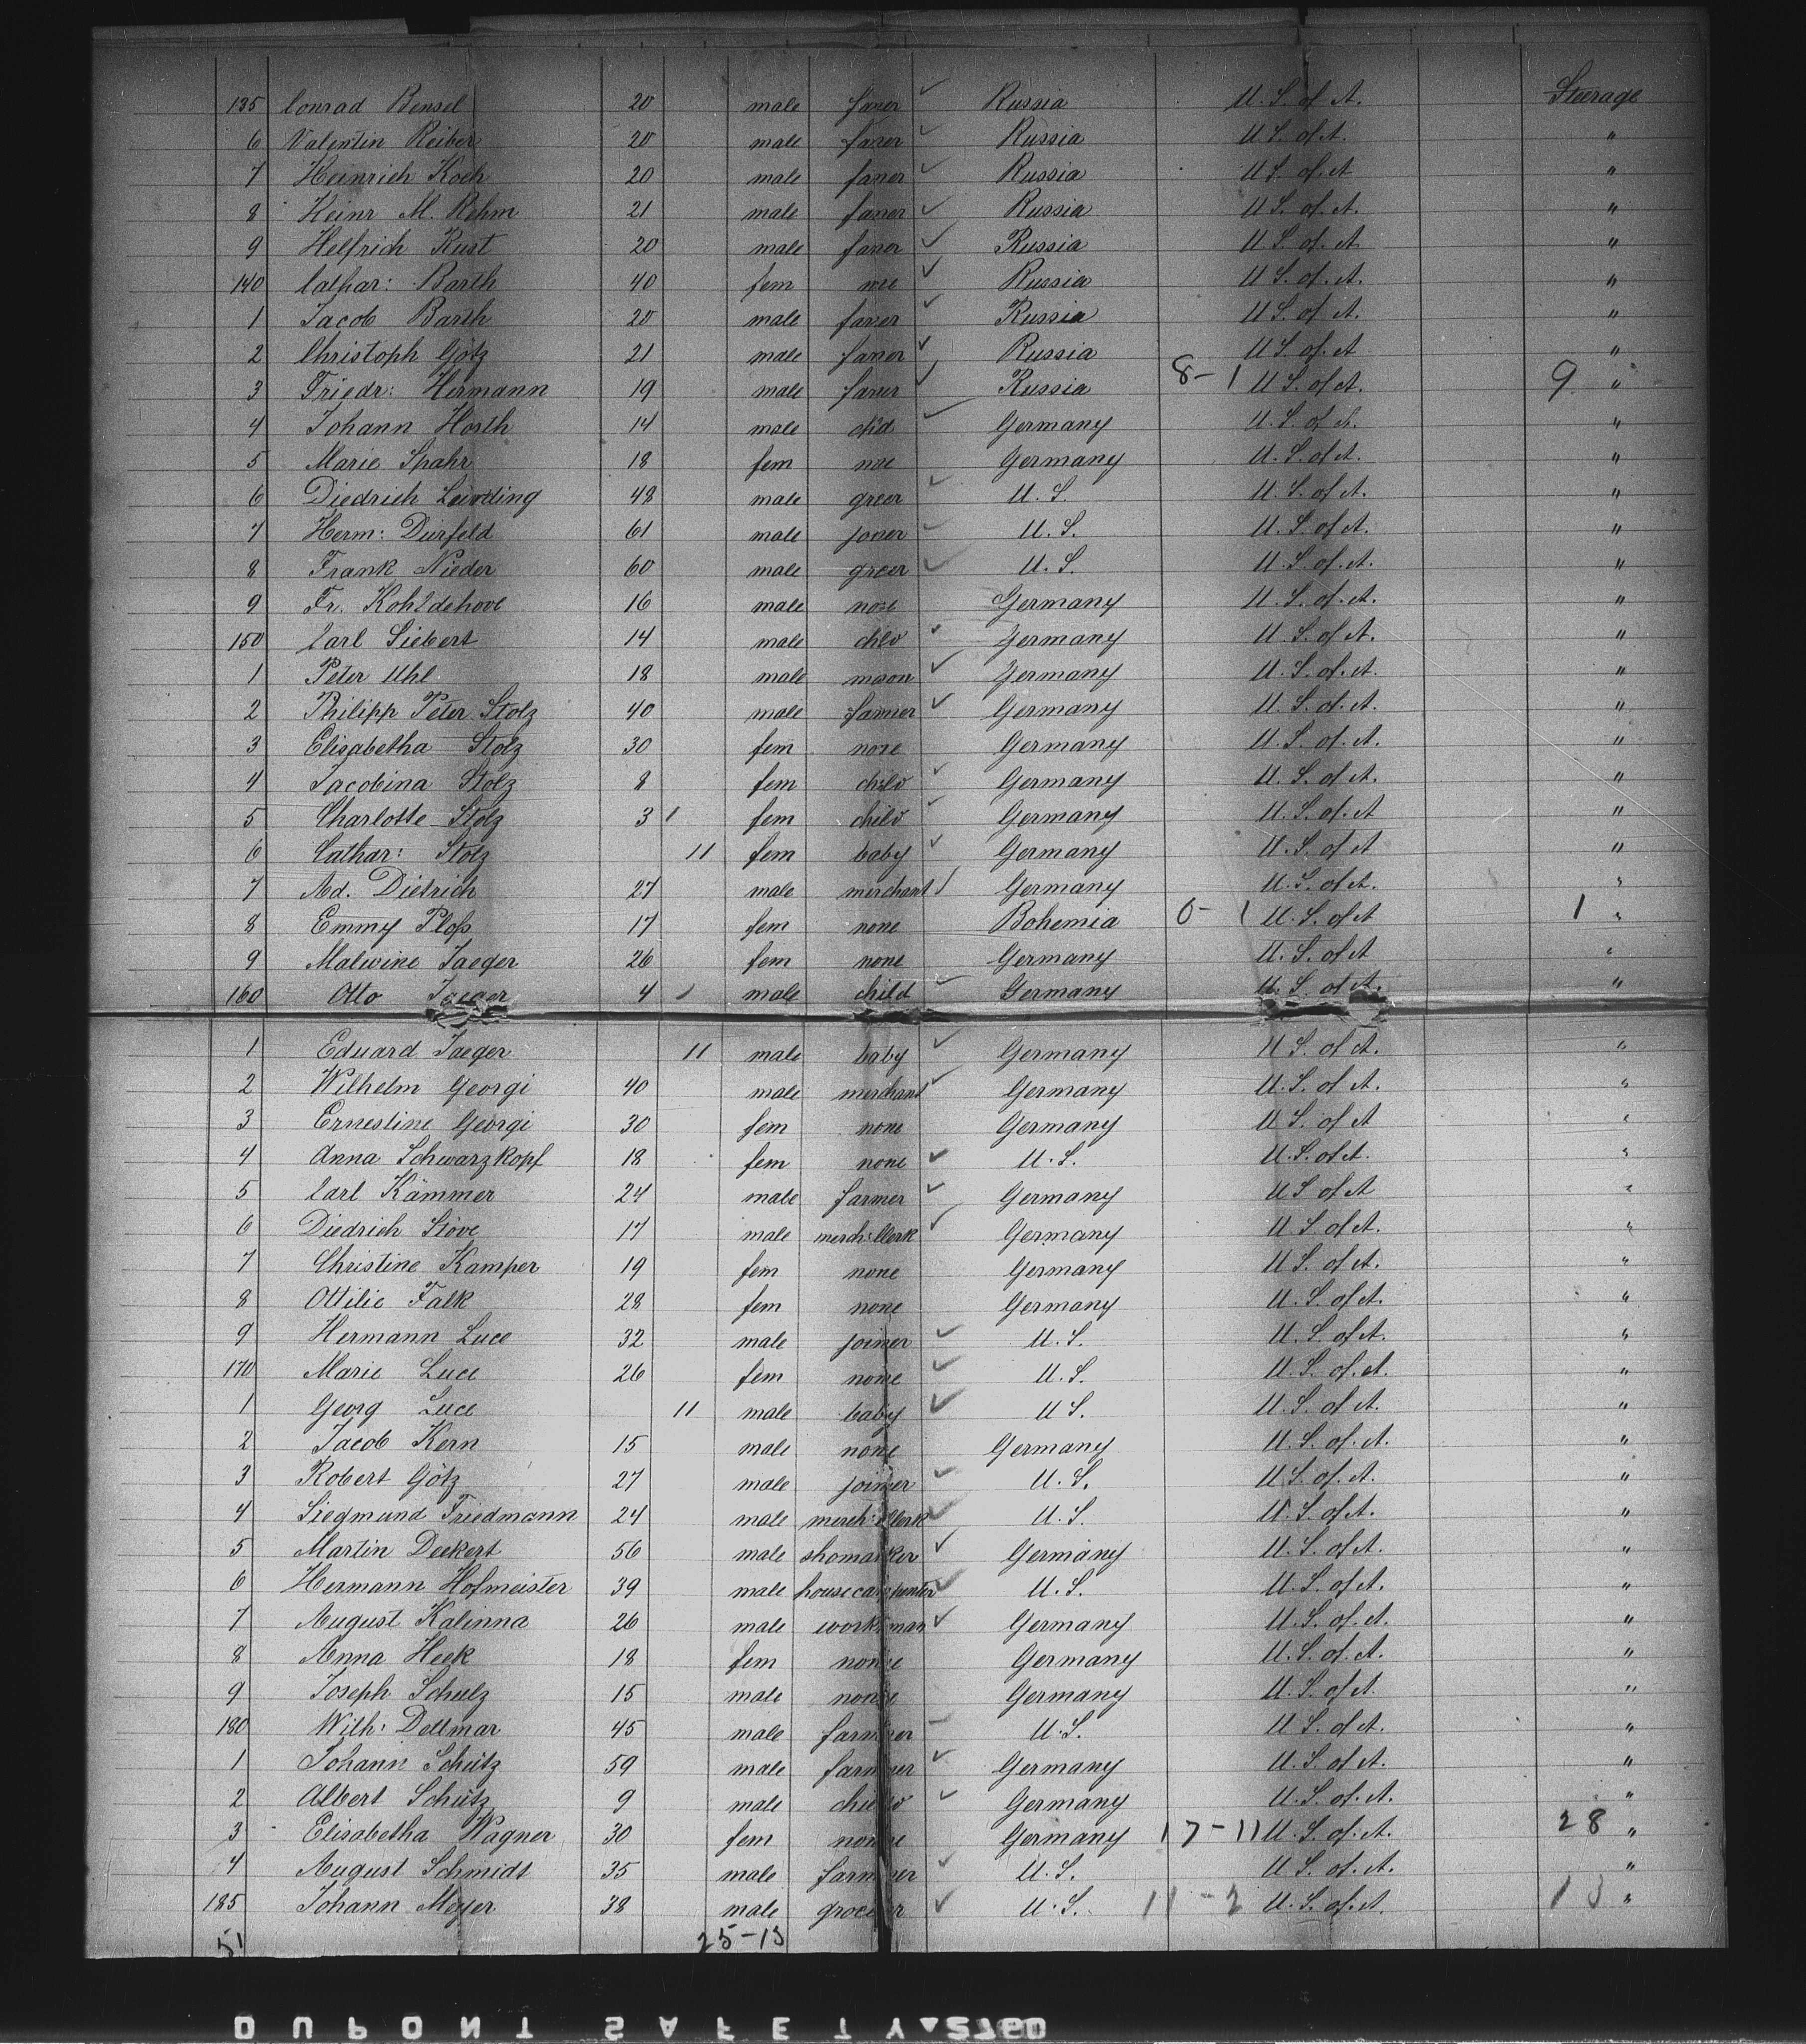 135 Conrad Bensel 20 male farer ✓ Russia U. S. of A. Steerage
6 Valentin Reiber 20 male farer ✓ Russia U S. of A. "
7 Heinrich Koch 20 male farer ✓ Russia U S. of. A "
8 Heinr M. Rehm 21 male farer ✓ Russia U S. of. A. "
9 Helfrich Rust 20 male farer ✓ Russia U S. of. A "
140 Cathar: Barth 40 fem ✓ Russia U S. of. A. "
1 Jacob Barth 20 male farer ✓ Russia U S. of. A. "
2 Christoph Götz 21 male farer ✓ Russia U S. of. A "
3 Friedr: Hermann 19 male farer ✓ Russia 8-1 U S. of A. 9 "
4 Johann Horth 14 male ✓ Germany U. S. of A. "
5 Marie Spahr 18 fem Germany U. S. of A. "
6 Diedrich 48 male grcer ✓ U. S. U. S. of A. "
7 Herm: Dürfeld 61 male joner ✓ U. S. U. S. of A. "
8 Frank Nieder 60 male grcer ✓ U. S. U. S. of. A. "
9 Fr. 16 male none Germany U. S. of. A. "
150 Carl Siebert 14 male ✓ Germany U. S. of A. "
1 Peter Uhl 18 male mason ✓ Germany U. S. of A. "
2 Philipp Peter Stolz 40 male farmer ✓ Germany U. S. of. A. "
3 Elisabetha Stolz 30 fem none Germany U. S. of. A. "
4 Jacobina Stolz 8 fem child ✓ Germany U. S. of A. "
5 Charlotte Stolz 3 fem child ✓ Germany U. S. of. A "
6 Cathar: Stolz 11 fem baby ✓ Germany U. S. of A "
7 Ad. Dietrich 27 male merchant ✓ Germany U. S. of A. "
8 Emmy Ploß 17 fem none Bohemia 0-1 U. S. of A 1 "
9 Malwine Jaeger 26 fem none Germany U. S. of A "
160 Otto Jaeger 4 male child ✓ Germany U. S. of A. "
1 Eduard Jaeger 11 male baby ✓ Germany U S. of A. "
2 Wilhelm Georgi 40 male merchant ✓ Germany U. S. of A. "
3 Ernestine Georgi 30 fem none Germany U S. of A "
4 Anna Schwarzkopf 18 fem none ✓ U. S. U. S. of A. "
5 Carl Kämmer 24 male farmer ✓ Germany U S of A "
6 Diedrich Stöve 17 male merch: Clerk ✓ Germany U. S. of A. "
7 Christine Kamper 19 fem none Germany U S. of A. "
8 Ottilie Falk 28 fem none Germany U. S. of A. "
9 Hermann Luce 32 male joiner ✓ U. S. U. S. of A. "
170 Marie Luce 26 fem none ✓ U. S. U. S. of. A. "
1 Georg Luce 11 male baby ✓ U S. U. S. of A. "
2 Jacob Kern 15 male none Germany U. S. of. A. "
3 Robert Götz 27 male joiner ✓ U. S. U S. of. A. "
4 Siegmund Friedmann 24 male merch: Clerk ✓ U. S. U. S. of A. "
5 Martin Deckert 56 male shomacker ✓ Germany U. S. of A. "
6 Hermann Hofmeister 39 male housecarpenter ✓ U. S. U. S. of A. "
7 August Kalinna 26 male workman ✓ Germany U. S. of. A. "
8 Anna Heck 18 fem none Germany U. S. of. A. "
9 Joseph Schulz 15 male none Germany U. S. of A "
180 Wilh: Dettmar 45 male farmer U. S. U. S. of A. "
1 Johann Schütz 59 male farmer ✓ Germany U. S. of A. "
2 Albert Schütz 9 male child ✓ Germany U. S. of. A. "
3 Elisabetha Wagner 30 fem none Germany 17-11 U. S. of. A. 28 "
4 August Schmidt 35 male farmer ✓ U. S. U S. of. A. "
185 Johann Meyer 38 male grocer ✓ U. S. 11-2 U. S. of. A. 13 "
51 25-13
DUPONT SAFETY